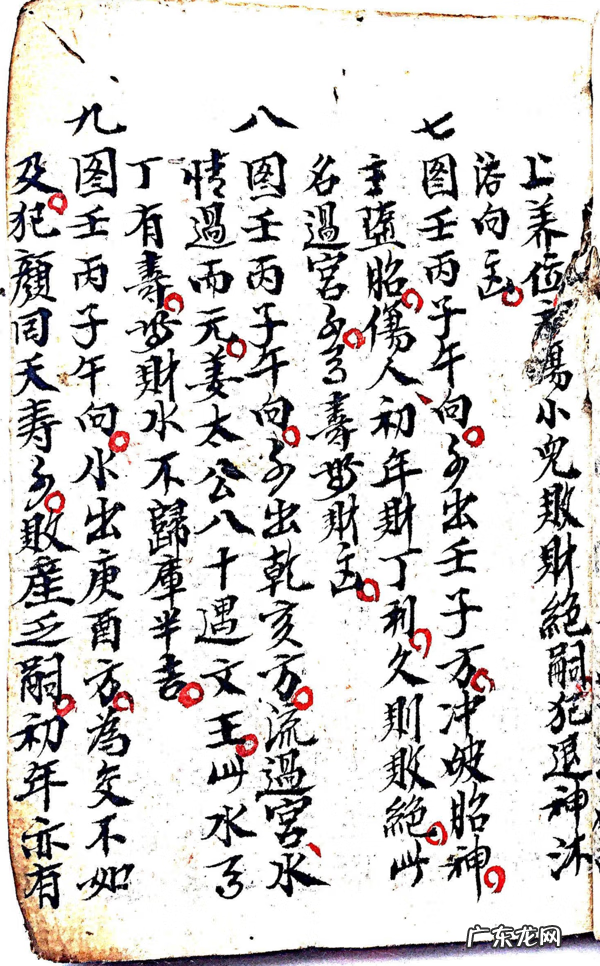 上养位神傷小兒敗財絕嗣犯退神沐
浴向
七
图壬丙子午向出壬子方冲破胎神
主墮胎傷人初年財丁利久則敗絕此
名過宮水有壽無財
八
图壬丙子午向出乾亥方流過宮水
情過而亢姜太公八十遇文王此水有
丁有壽無財水不歸庫半吉
九
图壬丙子午向水出庚酉方為交不如
及犯顏回夭壽水敗產乏嗣初年亦有
广东龙网